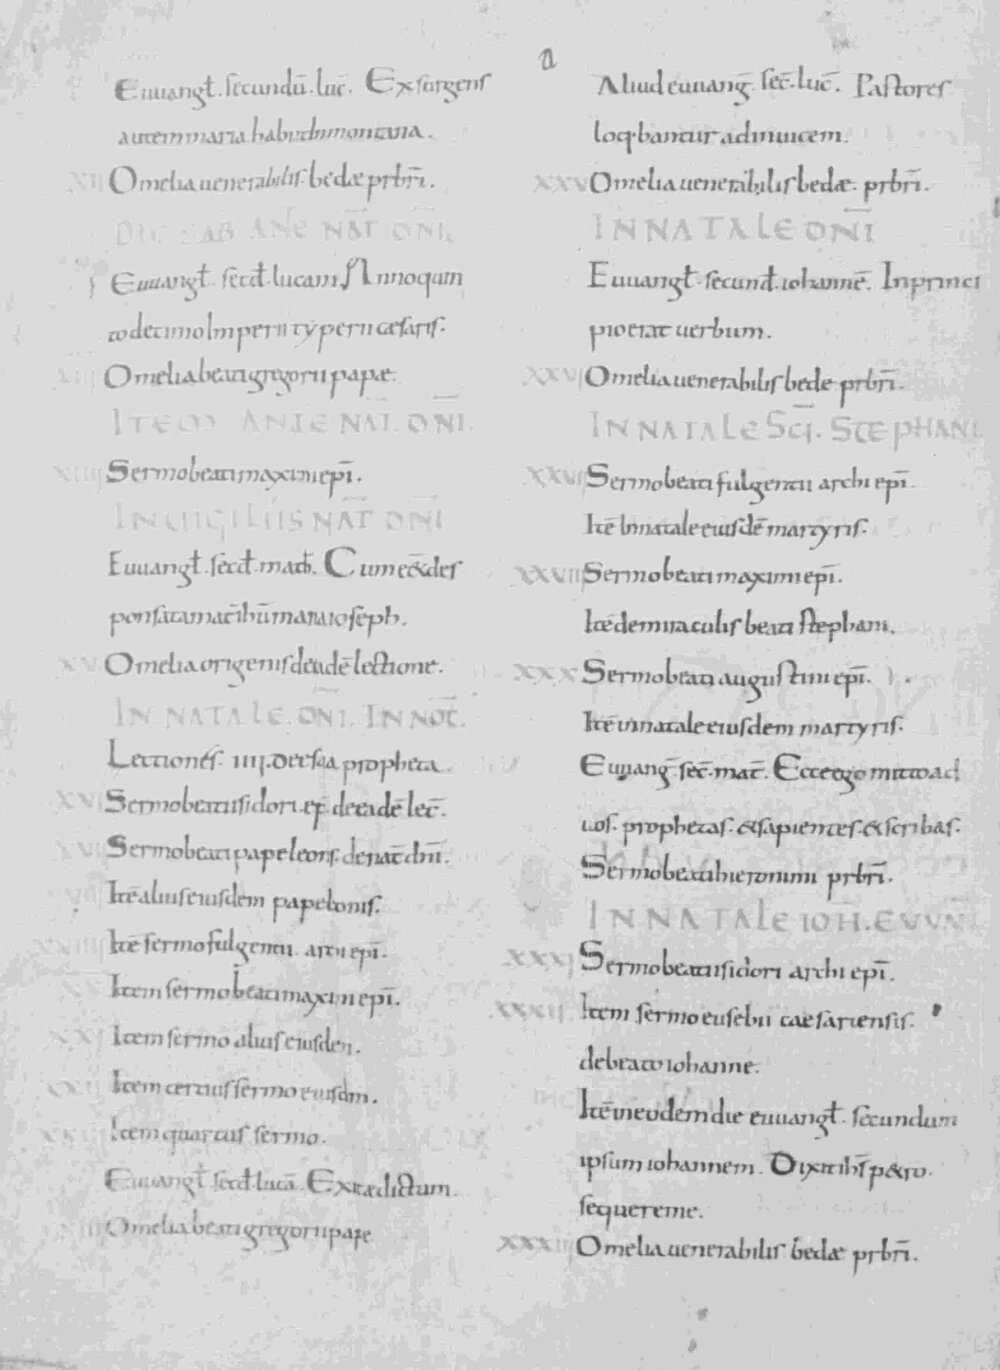 a
Euuangł. secundū. luc̄. Exsurgens
autem maria habiit in montana.
XII Omelia uenerabilis bedæ prbr̄i.
DIE SAB ANTE NAT̄ DN̄I.
Euuangł. secđ. lucam Anno quin
to decimo Imperii tyberii cesaris.
XIII Omelia beati gregorii papæ.
ITEM ANTE NAT̄. DN̄I.
XIIII Sermo beati maximi ep̄i.
IN UIGILIIS NAT̄ DN̄I
Euuangł. secđ. math. Cum e&des
ponsata mat̄ ih̄u maria ioseph.
XV Omelia origenis de eadē lectione.
IN NATALE. DN̄I. IN NOC̄.
Lectiones. IIII. De esaia propheta.
XVI Sermo beati isidori. ep̄. de eadē lec̄.
XVII Sermo beati pape leonis. de nat̄ dn̄i.
Itē alius eiusdem pape leonis.
XVIIII Itē sermo fulgentii. archi ep̄i.
XX Item sermo beati maximi ep̄i.
XXI Item sermo alius eiusdem.
XXII Item tertius sermo eiusdm.
XXIII Item quartus sermo.
Euuangł secđ lucā. Exiit edictum.
Omelia beati gregorii pape
Aliud euuang̅. sec̄. luc̄. Pastores
loq.bantur adinuicem.
XXV Omelia uenerabilis bedæ. prbr̄i.
IN NATALE DN̄I
Euuangł. secunđ. iohannē. In princi
pio erat uerbum.
XXVI Omelia uenerabilis bede prbr̄i.
IN NATALE SC̄I. STEPHANI
XXVII Sermo beati fulgentii archi ep̄i.
Itē In natale eiusdē martyris.
XXVIII Sermo beati maximi ep̄i.
Itē de miraculis beati stephani.
XXX Sermo beati augustini ep̄i.
Itē in natale eiusdem martyris.
Euuang̅. sec̄. mat̄. Ecce ego mitto ad
uos. prophetas. & sapientes. & scribas.
Sermo beati hieronimi prbr̄i.
IN NATALE IOH̄. EUUAN̄
XXXI Sermo beati isidori archi ep̄i.
XXXII Item sermo eusebii caesariensis.
de beato iohanne.
Itē in eodem die euuangł. secundum
ipsum iohannem. Dixit ih̄s p&ro.
sequere me.
XXXIII Omelia uenerabilis bedæ prbr̄i.